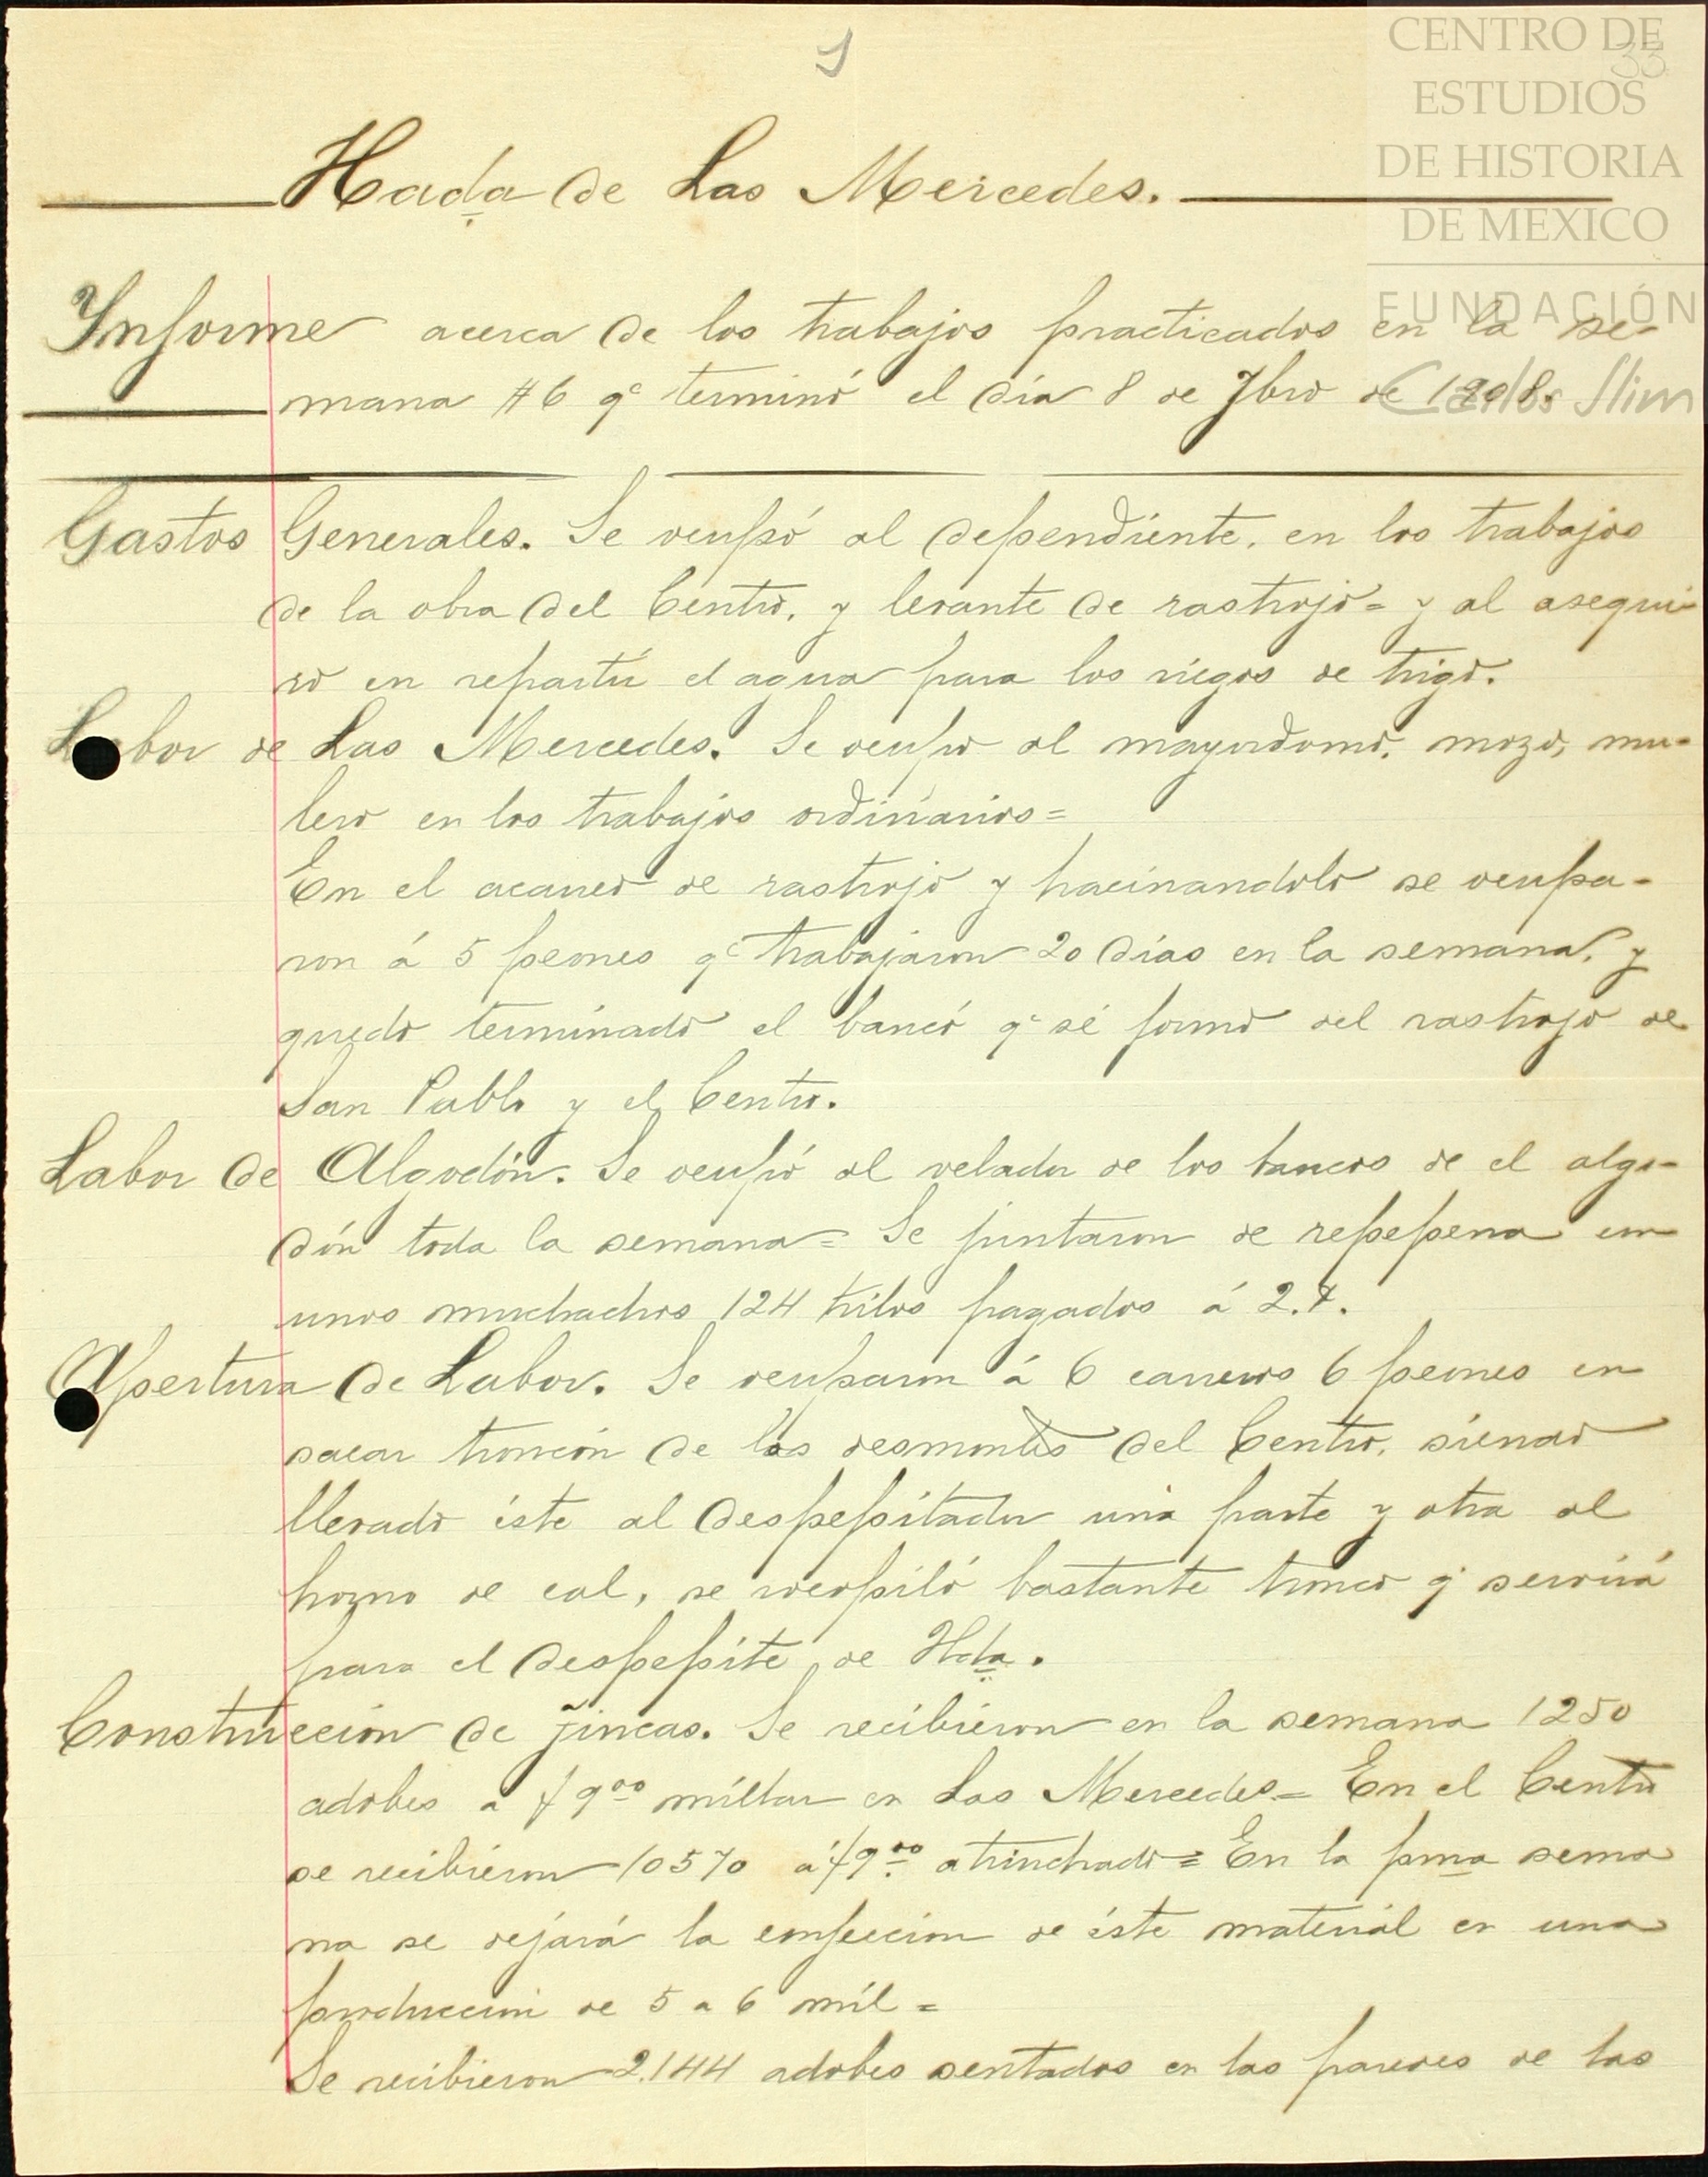 1
33
CENTRO DE
ESTUDIOS
DE HISTORIA
DE MEXICO
FUNDACIÓN
Carlos Slim
Hada de Las Mercedes.
Informe acerca de los trabajos practicados en la se-
mana #6 qe terminó el día 8 de Fbro de 1908.
Gastos Generales. Se ocupó al dependiente, en los trabajos
de la obra del Centro, y levante de rastrojo= y al asequi-
ro en repartir el agua para los riegos de trigo.
Labor de Las Mercedes. Se ocupo al mayordomo, mozo, mu-
lero en los trabajos ordinarios=
En el acarreo de rastrojo y hacinandolo se ocupa-
ron á 5 peones qe trabajaron 20 días en la semana, y
quedo terminado el banco qe se formo del rastrojo de
San Pablo y el Centro.
Labor de Algodón. Se ocupó al velador de los bancos de el algo-
dón toda la semana= Se juntaron de repepena con
unos muchachos 124 kilos pagados á 2.
Apertura de Labor. Se ocuparon á 6 carreros 6 peones en
sacar troncón de los desmontes del Centro, siendo
llevado éste al despepitador una parte y otra al
horno de cal, se acopiló bastante tronco q' servirá
para el despepite de Hda.
Construccion de fincas. Se recibieron en la semana 1250
adobes a $9.00 millar en Las Mercedes= En el Centro
se recibieron 10570 á $9.00 atrinchado= En la pma sema
na se dejará la confeccion de éste material en una
produccion de 5 a 6 mil=
Se recibieron 2.144 adobes sentados en las paredes de las